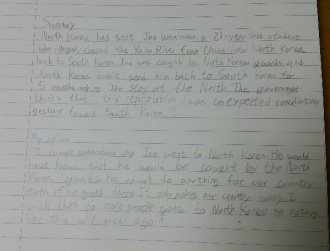 Summary
North Korea had sent Joo Won-moon a 21-year old student
who illegally crossed the Yalu River from China into North Korea
back to South Korea. Joo was caught by North Korean guards and
North Korea didn't send him back to South Korea for
5 months making Joo stay at the North. The government
thinks that the repatriation is an unexpected conciliatory
gesture toward South Korea.
My opinion
I don't understand why Joo went to North Korea. He would
have known that he would be caught by the North
Korean guards. He cannot do anything for our country
even if he goes there. It only makes our country
wish that no more people goes to North Korea
like this will never again